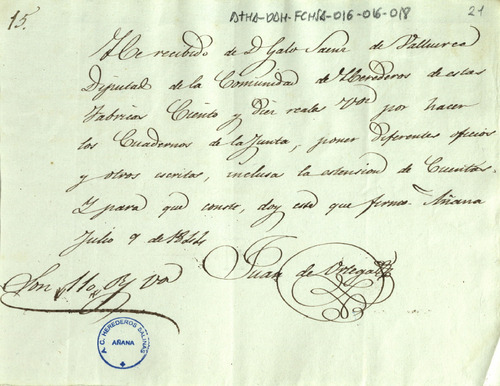 15.
ATHA-DAH-FCHSA-016-016-018
21
He recibido de D Galo Saenz de Valluerca
Diputad de la Comunidad de Herederos de estas
Fabricas Ciento y diez reales Von por hacer
los Cuadernos de la Junta, poner diferentes oficios
y otros escritos, inclusa la estension de Cuentas.
Y para qué conste, doy esté que firmo Añana
Julio 9 de 1844
Juan de Ortega
Son 110 Rs von
A. C. HEREDEROS SALINAS
AÑANA